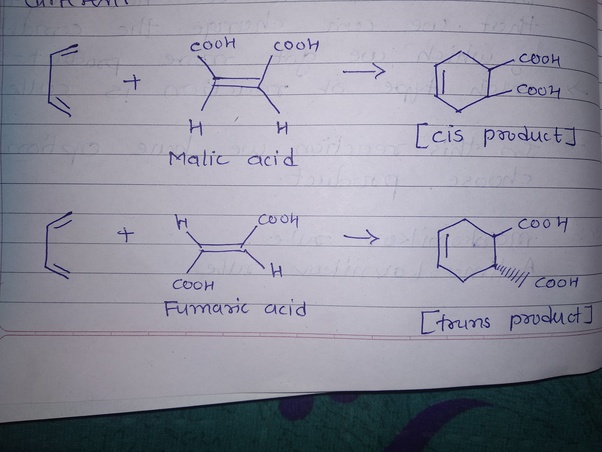 + COOH COOH → COOH
COOH
H H [cis product]
Malic acid
+ H COOH → COOH
COOH H COOH
Fumaric acid [trans product]